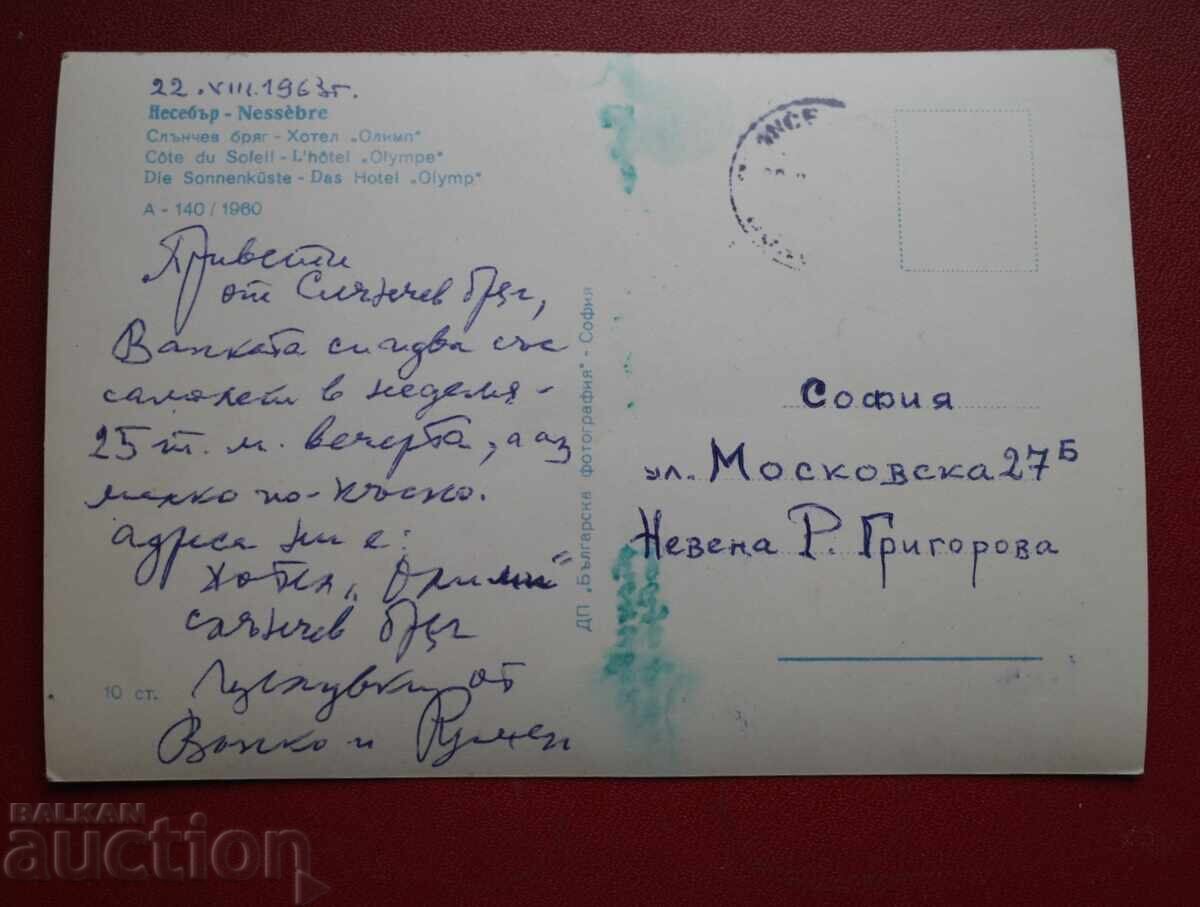 22.VIII.1963г.
Несебър - Nessèbre
Слънчев бряг - Хотел „Олимп"
Côte du Soleil - L'hôtel „Olympe"
Die Sonnenküste - Das Hotel „Olymp"
А - 140 / 1960
Привети
от Слънчев бряг,
Ванката си идва със
самолет в неделя -
25 т. м. вечерта, а аз
малко по-късно.
адреса ни е:
хотел „Олимп"
слънчев бряг
Целувки от
Ванко и Румен
10 ст.
ДП „Българска фотография" - София
София
ул. Московска 27Б
Невена Р. Григорова
BALKAN
auction